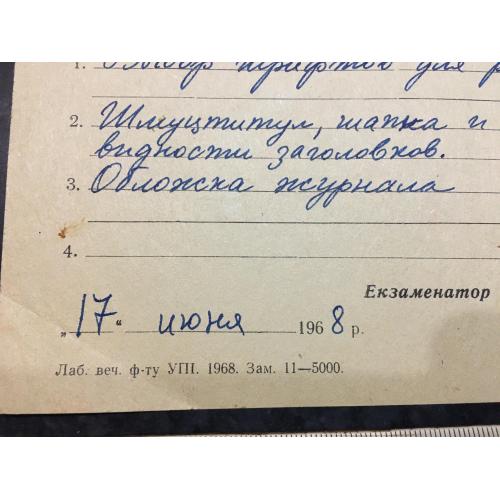 1. Выбор шрифтов для
2. Шмуцтитул, шапка и
видности заголовков.
3. Обложка журнала
4.
Екзаменатор
„17“ июня 1968 р.
Лаб. веч. ф-ту УПІ. 1968. Зам. 11—5000.